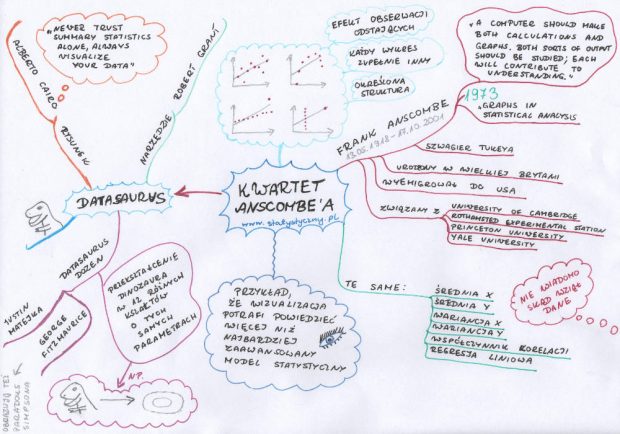 "NEVER TRUST
SUMMARY STATISTICS
ALONE, ALWAYS
VISUALIZE
YOUR DATA"
ALBERTO CAIRO
RYSUNEK
NARZĘDZIE ROBERT GRANT
DATASAURUS
DATASAURUS
DOZEN
JUSTIN
MATEJKA
GEORGE
FITZMAURICE
OBRAZUJĄ TEŻ
PARADOKS
SIMPSONA
PRZEKSZTAŁCENIE
DINOZAURA
W 12 RÓŻNYCH
KSZTAŁTÓW
O TYCH
SAMYCH
PARAMETRACH
NP.
EFEKT OBSERWACJI
ODSTAJĄCYCH
KAŻDY WYKRES
ZUPEŁNIE INNY
OKREŚLONA
STRUKTURA
KWARTET
ANSCOMBE'A
www.statystyczny.pl
PRZYKŁAD,
ŻE WIZUALIZACJA
POTRAFI POWIEDZIEĆ
WIĘCEJ NIŻ
NAJBARDZIEJ
ZAAWANSOWANY
MODEL STATYSTYCZNY
"A COMPUTER SHOULD MAKE
BOTH CALCULATIONS AND
GRAPHS. BOTH SORTS OF OUTPUT
SHOULD BE STUDIED; EACH
WILL CONTRIBUTE TO
UNDERSTANDING."
FRANK ANSCOMBE
13.05.1918-17.10.2001
1973
"GRAPHS IN
STATISTICAL ANALYSIS
SZWAGIER TUKEYA
URODZONY W WIELKIEJ BRYTANI
WYEMIGROWAŁ DO USA
ZWIĄZANY Z
UNIVERSITY OF CAMBRIDGE
ROTHAMSTED EXPERIMENTAL STATION
PRINCETON UNIVERSITY
YALE UNIVERSITY
TE SAME:
ŚREDNIA X
ŚREDNIA Y
WARIANCJA X
WARIANCJA Y
WSPÓŁCZYNNIK KORELACJI
REGRESJA LINIOWA
NIE WIADOMO
SKĄD WZIĄŁ
DANE